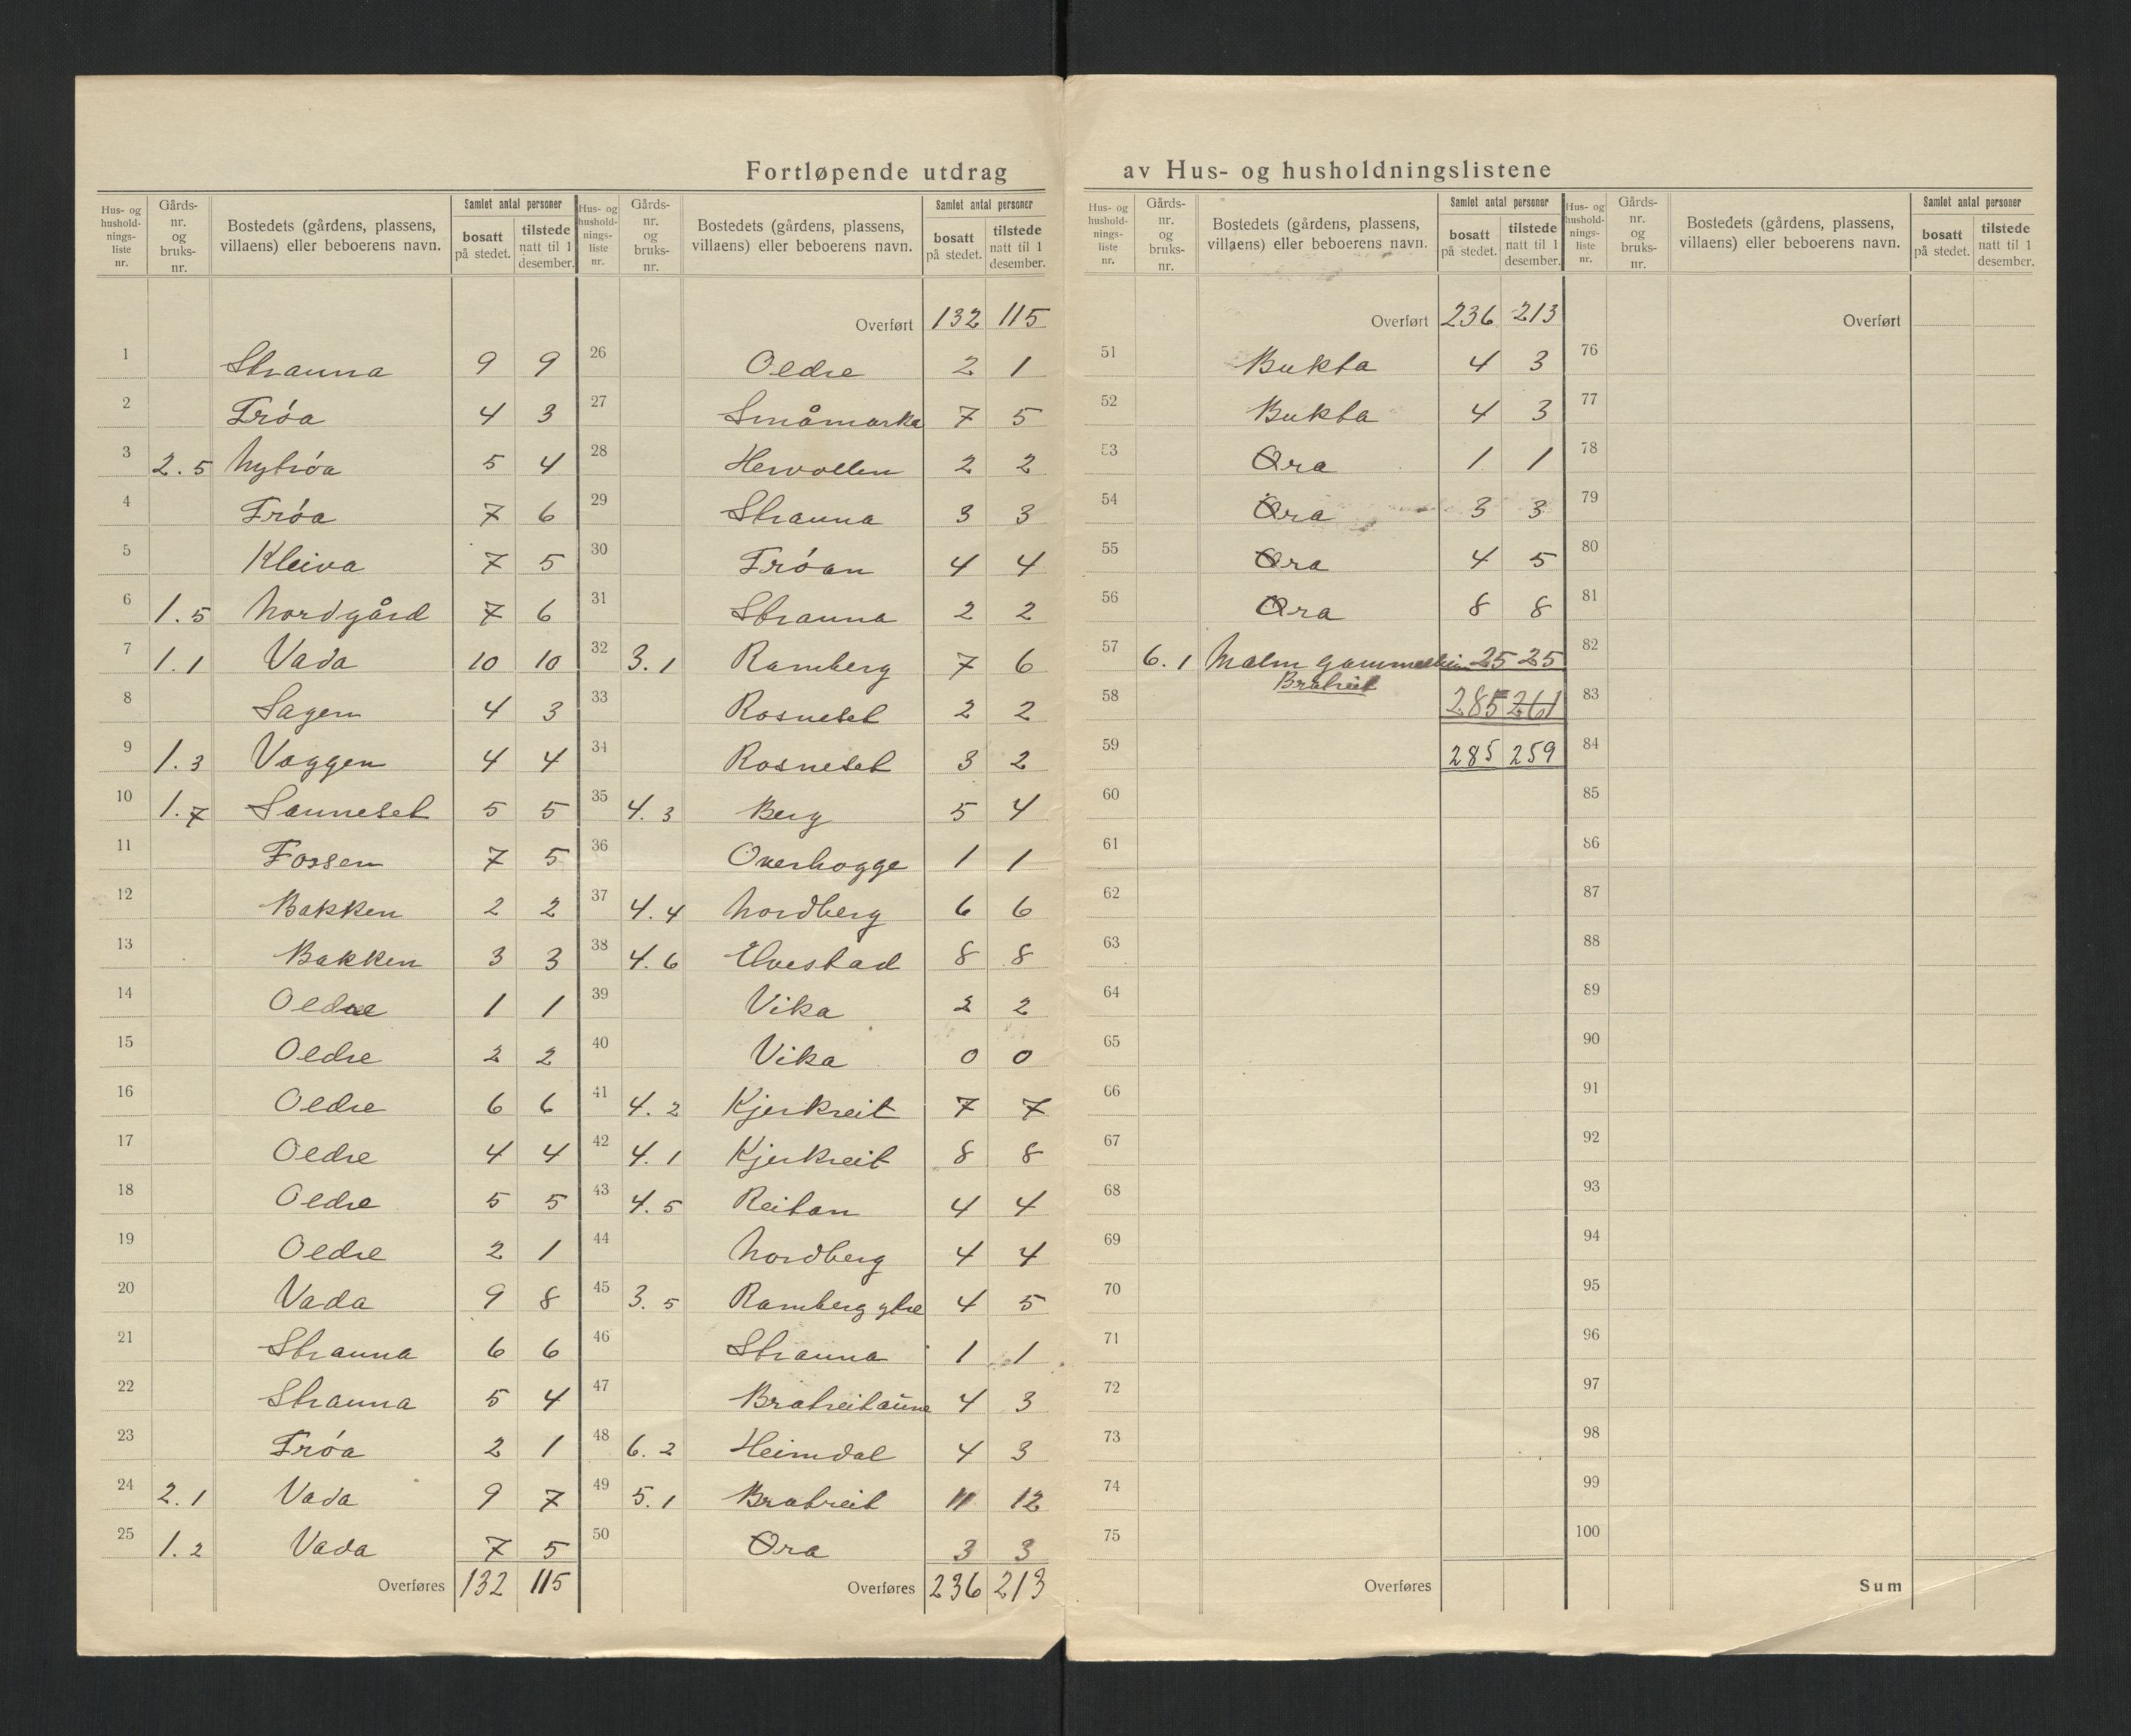 Fortløpende utdrag av Hus- og husholdningslistene
Hus- og hushold- nings- liste nr. Gårds- nr. og bruks- nr. Bostedets (gårdens, plassens, villaens) eller beboerens navn. Samlet antal personer bosatt på stedet. tilstede natt til 1 desember.
1 Strauna 9 9
2 Tróa 4 3
3 2.5 Nytróa 5 4
4 Tróa 7 6
5 Kleiva 7 5
6 1.5 Nordgård 7 6
7 1.1 Vada 10 10
8 Sagen 4 3
9 1.3 Vaggen 4 4
10 1.7 Sauneset 5 5
11 Fossen 7 5
12 Bakken 2 2
13 Bakken 3 3
14 Oldre 1 1
15 Oldre 2 2
16 Oldre 6 6
17 Oldre 4 4
18 Oldre 5 5
19 Oldre 2 1
20 Vada 9 8
21 Strauna 6 6
22 Strauna 5 4
23 Tróa 2 1
24 2.1 Vada 9 7
25 1.2 Vada 7 5
Overføres 132 115
Hus- og hushold- nings- liste nr. Gårds- nr. og bruks- nr. Bostedets (gårdens, plassens, villaens) eller beboerens navn. Samlet antal personer bosatt på stedet. tilstede natt til 1 desember.
Overført 132 115
26 Oldre 2 1
27 Småmarka 7 5
28 Hervollen 2 2
29 Strauna 3 3
30 Tróan 4 4
31 Strauna 2 2
32 3.1 Ramberg 7 6
33 Rosneset 2 2
34 Rosneset 3 2
35 4.3 Berg 5 4
36 Overhogge 1 1
37 4.4 Nordberg 6 6
38 4.6 Elvestad 8 8
39 Vika 2 2
40 Vika 0 0
41 4.2 Kjerkreit 7 7
42 4.1 Kjerkreit 8 8
43 4.5 Reitan 4 4
44 Nordberg 4 4
45 3.5 Ramberg ytre 4 5
46 Strauna 1 1
47 Bratreitaune 4 3
48 6.2 Heimdal 4 3
49 5.1 Bratreit 11 12
50 Øra 3 3
Overføres 236 213
Hus- og hushold- nings- liste nr. Gårds- nr. og bruks- nr. Bostedets (gårdens, plassens, villaens) eller beboerens navn. Samlet antal personer bosatt på stedet. tilstede natt til 1 desember.
Overført 236 213
51 Bukta 4 3
52 Bukta 4 3
53 Øra 1 1
54 Øra 3 3
55 Øra 4 5
56 Øra 8 8
57 6.1 Malm gammelheim 25 25
Bratreit
58 285 261
59 285 259
60
61
62
63
64
65
66
67
68
69
70
71
72
73
74
75
Overføres
Hus- og hushold- nings- liste nr. Gårds- nr. og bruks- nr. Bostedets (gårdens, plassens, villaens) eller beboerens navn. Samlet antal personer bosatt på stedet. tilstede natt til 1 desember.
Overført
76
77
78
79
80
81
82
83
84
85
86
87
88
89
90
91
92
93
94
95
96
97
98
99
100
Sum